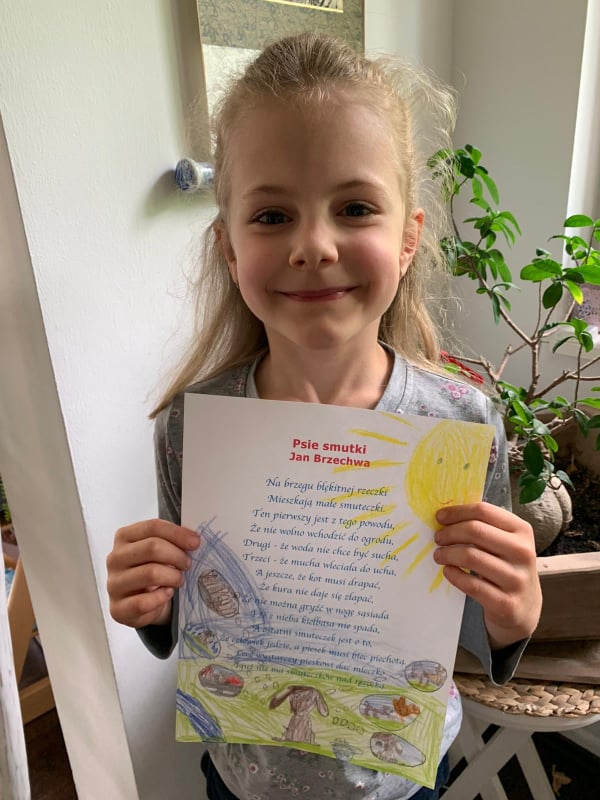 Psie smutki
Jan Brzechwa
Na brzegu błękitnej rzeczki
Mieszkają małe smuteczki.
Ten pierwszy jest z tego powodu,
Że nie wolno wchodzić do ogrodu,
Drugi - że woda nie chce być sucha,
Trzeci - że mucha wleciała do ucha,
A jeszcze, że kot musi drapać,
Że kura nie daje się złapać,
Że nie można gryźć w nogę sąsiada
I że z nieba kiełbasa nie spada,
A ostatni smuteczek jest o to,
Że człowiek jedzie, a piesek musi biec piechotą.
Lecz wystarczy pieskowi dać mleczko
I już nie ma smuteczków nad rzeczką.